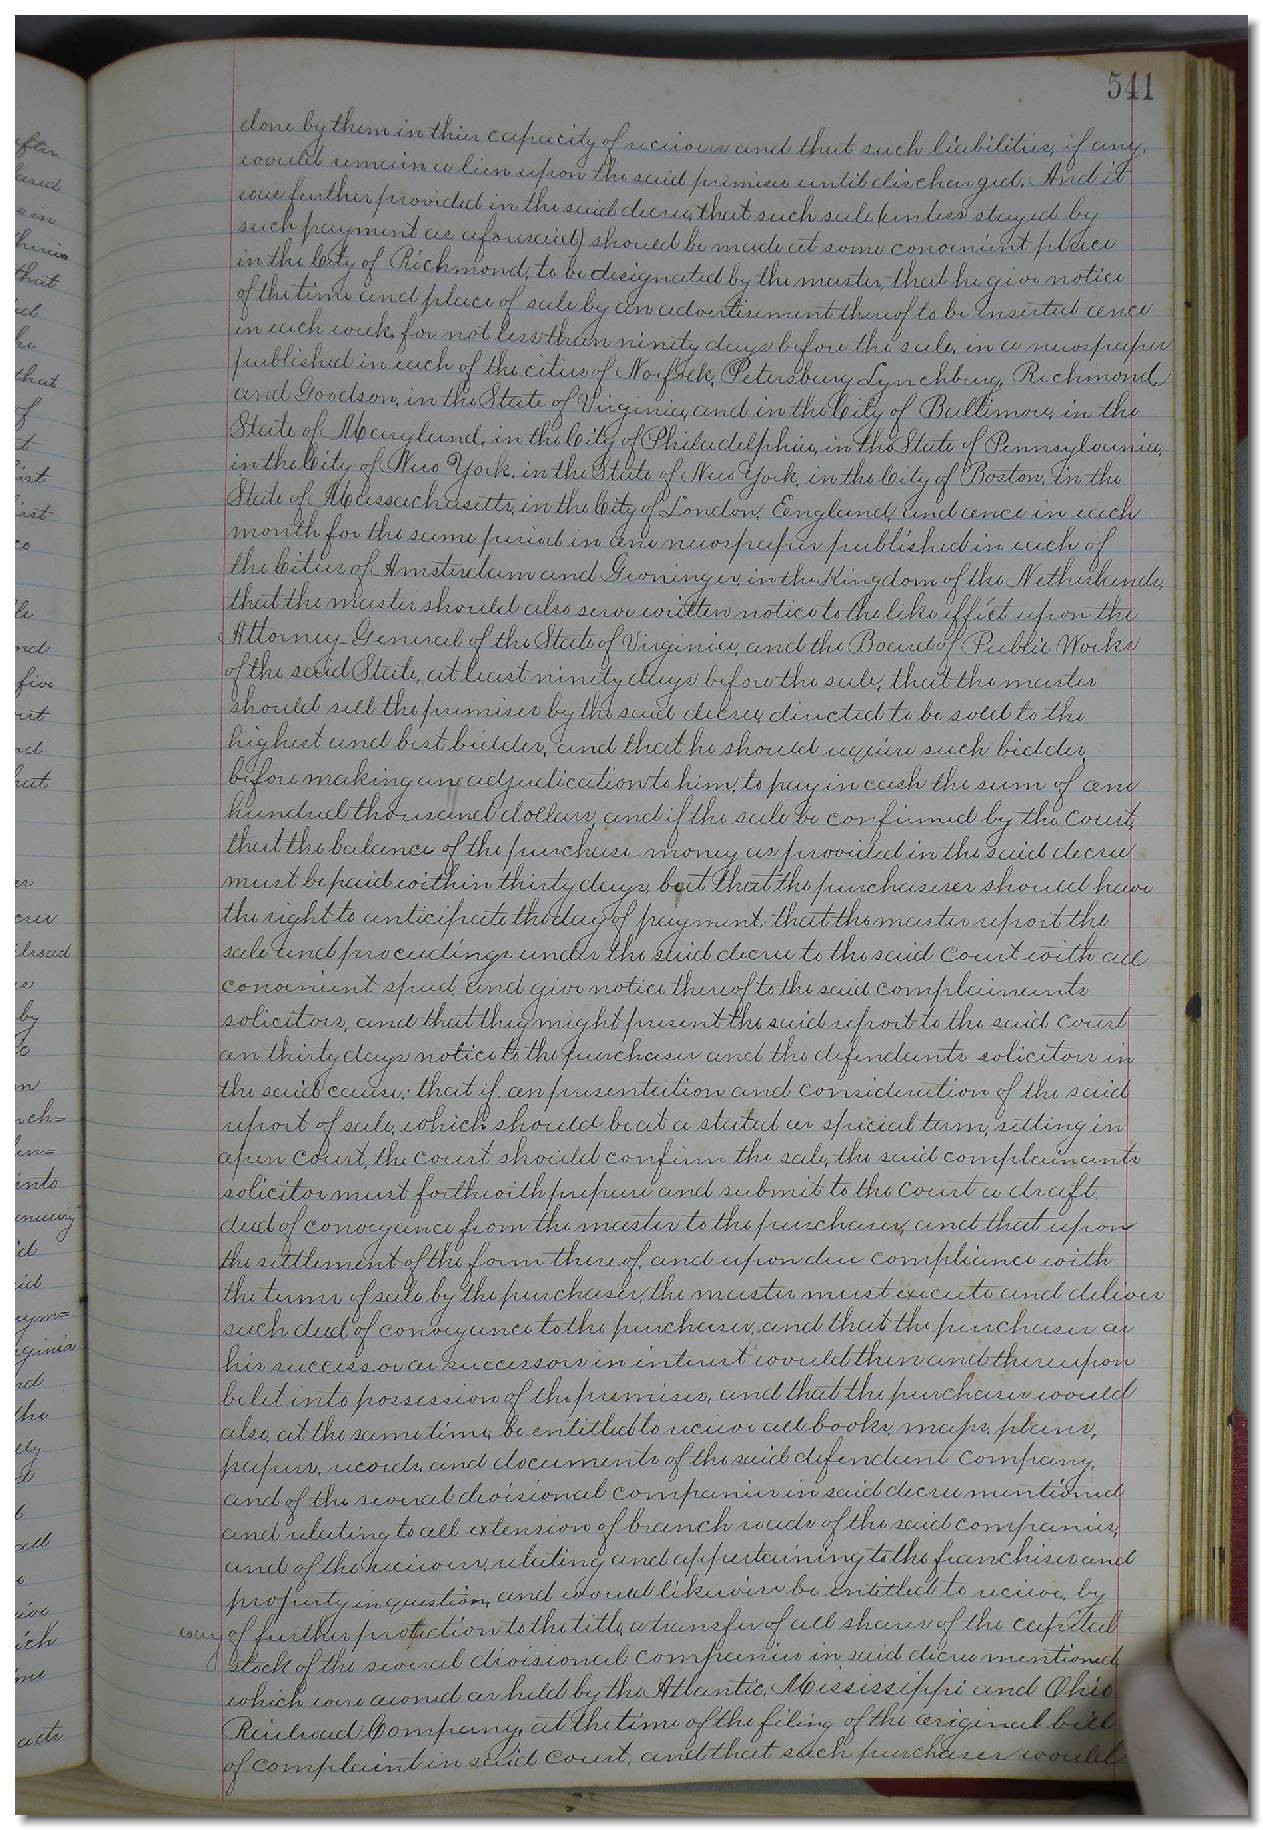 541
done by them in thier capacity of receivers and that such liabilities, if any,
would remain a lien upon the said premises until discharged. And it
was further provided in the said decree, that such sale (unless stayed by
such payment as aforesaid) should be made at some convenient place
in the City of Richmond, to be designated by the master, that he give notice
of the time and place of sale by an advertisement thereof to be inserted once
in each week, for not less than ninety days before the sale, in a newspaper
published in each of the cities of Norfolk, Petersburg, Lynchburg, Richmond,
and Goodson, in the State of Virginia, and in the City of Baltimore, in the
State of Maryland, in the City of Philadelphia, in the State of Pennsylvania,
in the City of New York, in the State of New York, in the City of Boston, in the
State of Massachusetts, in the City of London, England, and once in each
month for the same period in one newspaper published in each of
the Cities of Amsterdam and Groningen, in the Kingdom of the Netherlands,
that the master should also serve written notice to the like effect upon the
Attorney General of the State of Virginia, and the Board of Public Works
of the said State, at least ninety days before the sale; that the master
should sell the premises by the said decree directed to be sold to the
highest and best bidder, and that he should require such bidder,
before making an adjudication to him, to pay in cash the sum of one
hundred thousand dollars, and if the sale be confirmed by the court,
that the balance of the purchase money as provided in the said decree
must be paid within thirty days, but that the purchaser should have
the right to anticipate the day of payment, that the master report the
sale and proceedings under the said decree to the said court with all
convenient speed, and give notice thereof to the said complainants
solicitors, and that they might present the said report to the said court
on thirty days notice to the purchaser and the defendants solicitors in
the said cause; that if on presentation and consideration of the said
report of sale, which should be at a stated or special term, sitting in
open court, the court should confirm the sale, the said complainants
solicitor must forthwith prepare and submit to the court a draft
deed of conveyance from the master to the purchaser, and that upon
the settlement of the form thereof, and upon due compliance with
the terms of sale by the purchaser, the master must execute and deliver
such deed of conveyance to the purchaser, and that the purchaser or
his successor or successors in interest would then and thereupon
be let into possession of the premises, and that the purchaser would
also, at the same time, be entitled to receive all books, maps, plans,
papers, records, and documents of the said defendant company,
and of the several divisional companies in said decree mentioned
and relating to all extension of branch roads of the said companies,
and of the receivers, relating and appertaining to the franchises and
property in question, and would likewise be entitled to receive, by
way of further protection to the title, a transfer of all shares of the capital
stock of the several divisional companies in said decree mentioned,
which were owned or held by the Atlantic, Mississippi and Ohio
Railroad Company, at the time of the filing of the original bill
of complaint in said court, and that such purchaser would